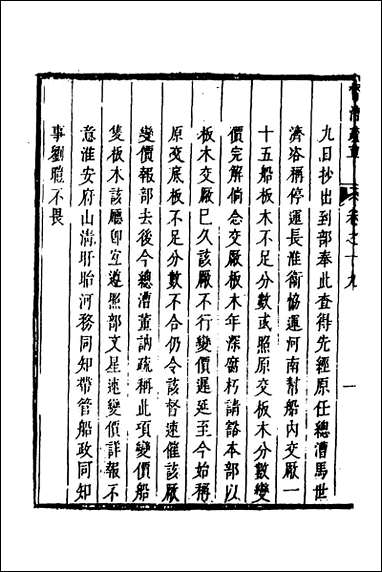 卷之十九
一
九日抄出到部奉此查得先經原任總漕馬世
濟咨稱停運長淮衛協運河南幫船內交厰一
十五船板木不足分數或照原交板木分數變
價完解倘念交厰板木年深腐朽請豁本部以
板木交厰巳久該厰不行變價遲延至今始稱
原交底板不足分數不合仍令該督速催該厰
變價報部去後今總漕董訥疏稱此項變價船
隻板木該廳卽宜遵照部文星速變價詳報不
意淮安府山清盱眙河務同知帶管船政同知
事劉𤫊不畏